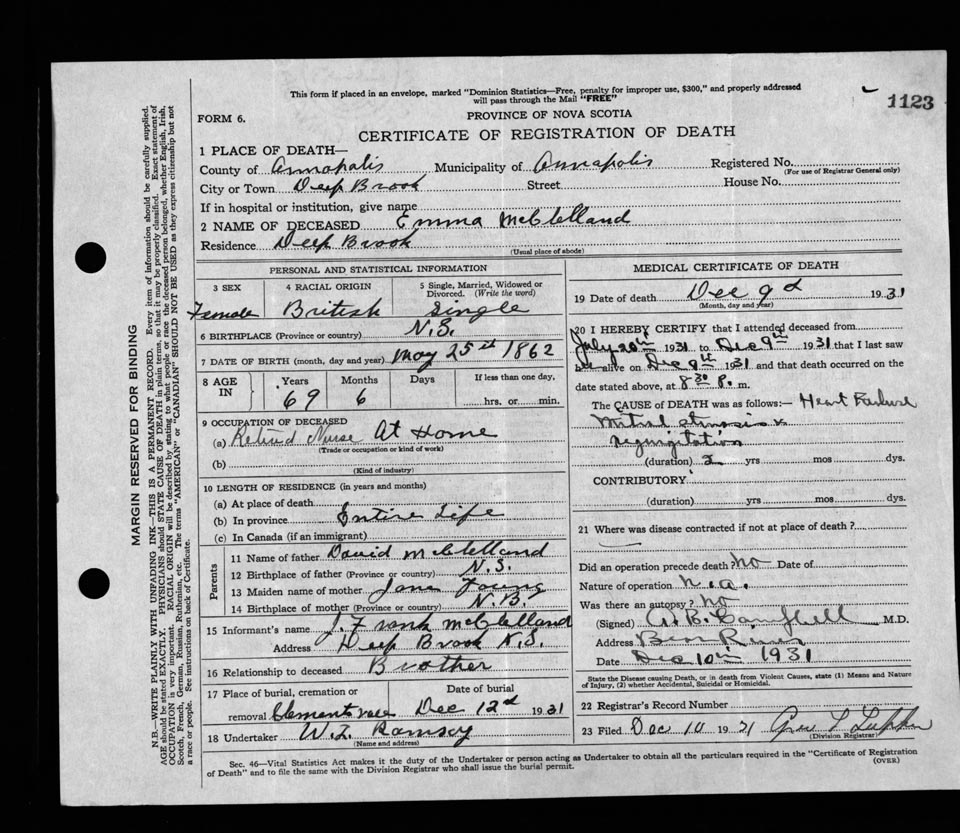 This form if placed in an envelope, marked "Dominion Statistics—Free, penalty for improper use, $300," and properly addressed
will pass through the Mail "FREE"
1123
FORM 6.
PROVINCE OF NOVA SCOTIA
CERTIFICATE OF REGISTRATION OF DEATH
1 PLACE OF DEATH—
County of Annapolis Municipality of Annapolis Registered No.
(For use of Registrar General only)
City or Town Deep Brook Street House No.
If in hospital or institution, give name
2 NAME OF DECEASED Emma McClelland
Residence Deep Brook
(Usual place of abode)
PERSONAL AND STATISTICAL INFORMATION
3 SEX 4 RACIAL ORIGIN 5 Single, Married, Widowed or Divorced. (Write the word)
Female British Single
6 BIRTHPLACE (Province or country) N.S.
7 DATE OF BIRTH (month, day and year) May 25th 1862
8 AGE IN Years Months Days If less than one day,
69 6 hrs. or min.
9 OCCUPATION OF DECEASED
(a) Retired Nurse At Home
(Trade or occupation or kind of work)
(b)
(Kind of industry)
10 LENGTH OF RESIDENCE (in years and months)
(a) At place of death
(b) In province Entire Life
(c) In Canada (if an immigrant)
Parents
11 Name of father David McClelland
12 Birthplace of father (Province or country) N.S.
13 Maiden name of mother Jane Young
14 Birthplace of mother (Province or country) N.B.
15 Informant's name J. Frank McClelland
Address Deep Brook N.S.
16 Relationship to deceased Brother
17 Place of burial, cremation or Date of burial
removal Clementsvale Dec 12d 1931
18 Undertaker W.L. Ramsey
(Name and address)
MEDICAL CERTIFICATE OF DEATH
19 Date of death Dec 9d 1931
(Month, day and year)
20 I HEREBY CERTIFY that I attended deceased from
July 20th 1931 to Dec 9th 1931 that I last saw
alive on Dec 9th 1931 and that death occurred on the
date stated above, at 8-30 P. m.
The CAUSE OF DEATH was as follows:— Heart Failure
Mitral stenosis &
regurgitation
(duration) 2 yrs mos dys.
CONTRIBUTORY
(duration) yrs mos dys.
21 Where was disease contracted if not at place of death?
—
Did an operation precede death? No Date of
Nature of operation n.a.
Was there an autopsy? No
(Signed) B. Campbell M.D.
Address Bear River
Date Dec 10th 1931
State the Disease causing Death, or in death from Violent Causes, state (1) Means and Nature
of Injury, (2) whether Accidental, Suicidal or Homicidal.
22 Registrar's Record Number
23 Filed Dec 10 1931
(Division Registrar)
Sec. 46—Vital Statistics Act makes it the duty of the Undertaker or person acting as Undertaker to obtain all the particulars required in the "Certificate of Registration
of Death" and to file the same with the Division Registrar who shall issue the burial permit.
(OVER)
MARGIN RESERVED FOR BINDING
N.B.—WRITE PLAINLY WITH UNFADING INK—THIS IS A PERMANENT RECORD. Every item of information should be carefully supplied.
AGE should be stated EXACTLY. PHYSICIANS should STATE CAUSE OF DEATH in plain terms, so that it may be properly classified. Exact statement of
OCCUPATION is very important. RACIAL ORIGIN will be described by stating to what people or race the deceased person belonged, whether English, Irish,
Scotch, French, German, Russian, Ruthenian, etc. The terms "AMERICAN" or "CANADIAN" SHOULD NOT BE USED as they express citizenship but not
a race or people. See instructions on back of Certificate.